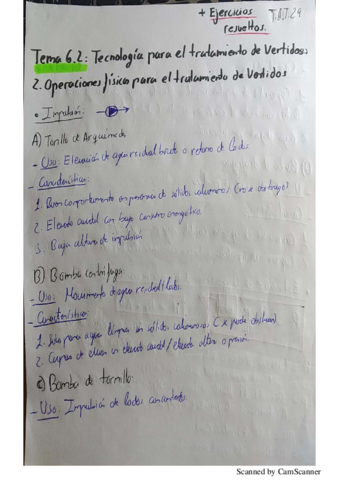 + Ejercicios
resueltos
T.A.I.24
Tema 6.2: Tecnología para el tratamiento de Vertidos
2. Operaciones física para el tratamiento de Vertidos
• Impulsión:
A) Tornillo de Arquímedes
- Uso: Elevación de agua residual bruta o retorno de lodos
- Características:
1. Buen comportamiento en presencia de sólidos voluminosos (no se obstruye)
2. Elevado caudal con bajo consumo energético.
3. Baja altura de impulsión
B) Bomba centrífuga:
- Uso: Movimiento de agua residual/lodos.
- Características:
1. para agua limpia sin sólidos voluminosos (se puede obstruir)
2. Capaz de elevar un elevado caudal/elevada altura o presión.
C) Bomba de tornillo:
- Uso: Impulsión de lodos
Scanned by CamScanner